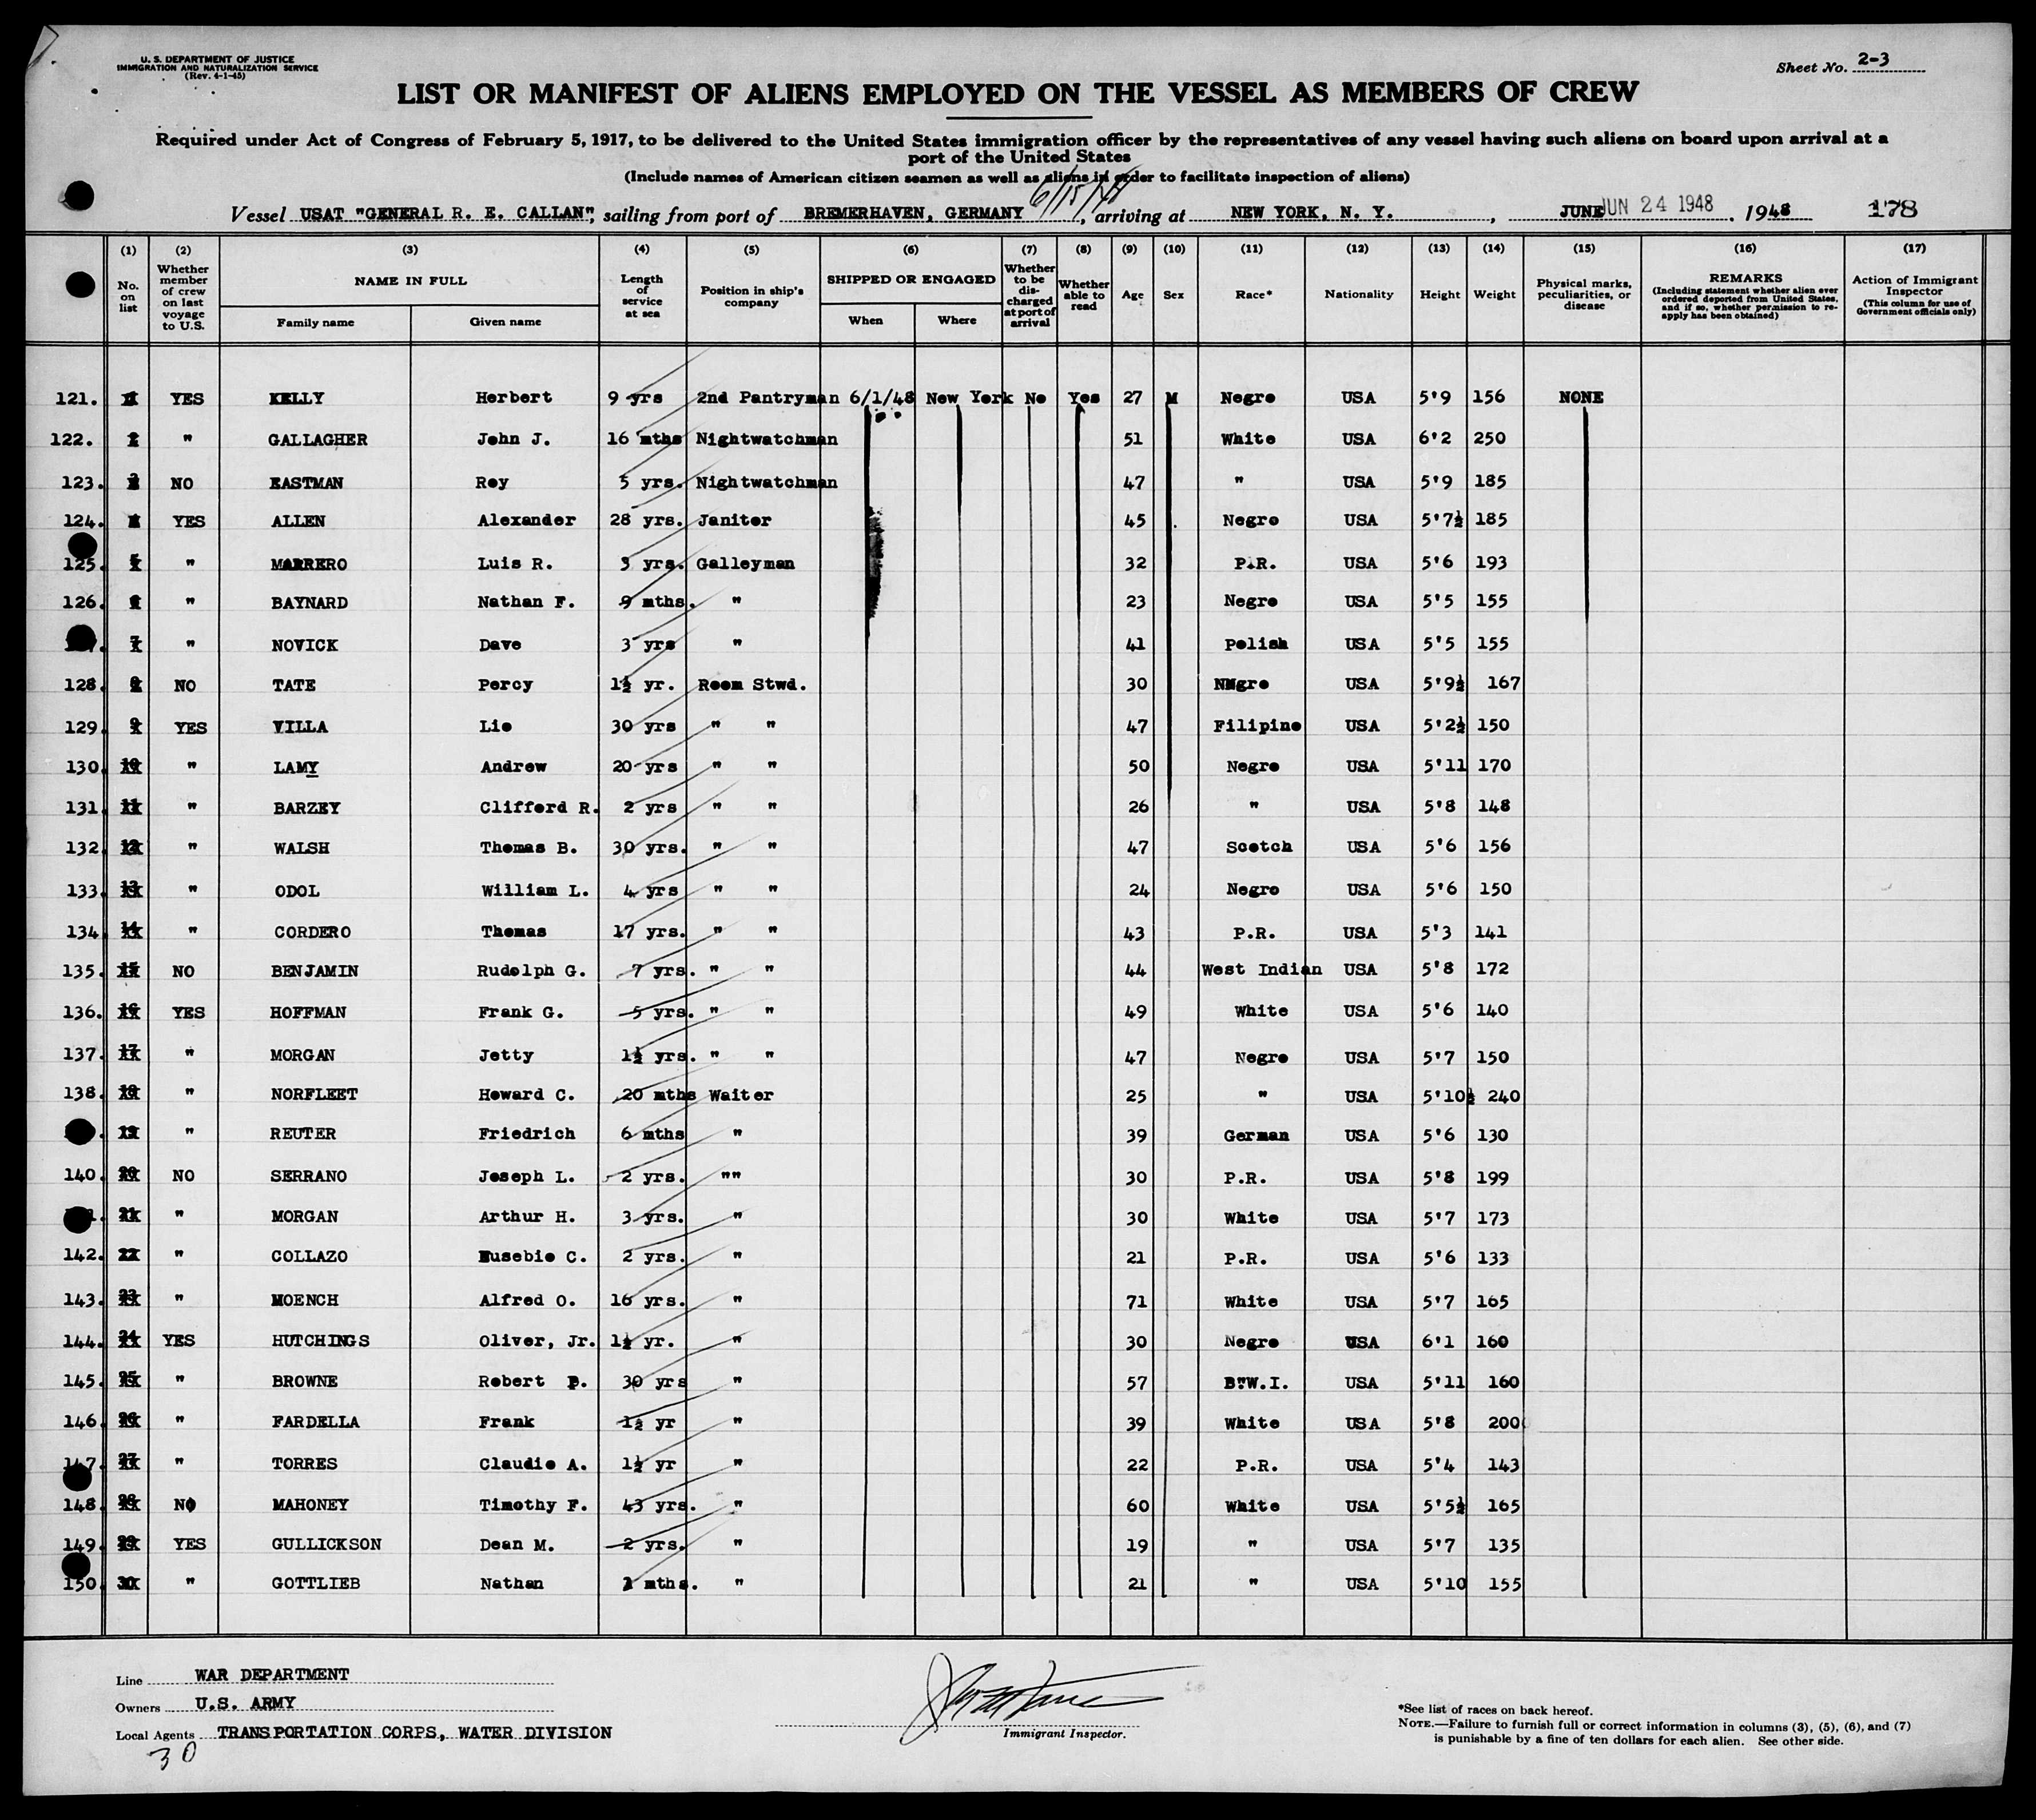 U. S. DEPARTMENT OF JUSTICE
IMMIGRATION AND NATURALIZATION SERVICE
(Rev. 4-1-45)
Sheet No. 2-3
LIST OR MANIFEST OF ALIENS EMPLOYED ON THE VESSEL AS MEMBERS OF CREW
Required under Act of Congress of February 5, 1917, to be delivered to the United States immigration officer by the representatives of any vessel having such aliens on board upon arrival at a
port of the United States
(Include names of American citizen seamen as well as aliens in order to facilitate inspection of aliens)
6/15/48
Vessel USAT "GENERAL R. E. CALLAN", sailing from port of BREMERHAVEN, GERMANY, arriving at NEW YORK, N. Y., JUNE JUN 24 1948, 1948 178
(1) (2) (3) (4) (5) (6) (7) (8) (9) (10) (11) (12) (13) (14) (15) (16) (17)
No. on list Whether member of crew on last voyage to U.S. NAME IN FULL Family name Given name Length of service at sea Position in ship's company SHIPPED OR ENGAGED When Where Whether to be discharged at port of arrival Whether able to read Age Sex Race* Nationality Height Weight Physical marks, peculiarities, or disease REMARKS (Including statement whether alien ever ordered deported from United States, and if so, whether permission to re-apply has been obtained) Action of Immigrant Inspector (This column for use of Government officials only)
121. 1 YES KELLY Herbert 9 yrs 2nd Pantryman 6/1/48 New York No Yes 27 M Negro USA 5'9 156 NONE
122. 2 " GALLAGHER John J. 16 mths Nightwatchman 51 White USA 6'2 250
123. 3 NO EASTMAN Roy 5 yrs. Nightwatchman 47 " USA 5'9 185
124. YES ALLEN Alexander 28 yrs. Janitor 45 Negro USA 5'7½ 185
125. 5 " MARRERO Luis R. 3 yrs. Galleyman 32 P.R. USA 5'6 193
126. 6 " BAYNARD Nathan F. 9 mths. " 23 Negro USA 5'5 155
7 " NOVICK Dave 3 yrs " 41 Polish USA 5'5 155
128. 8 NO TATE Percy 1½ yr. Room Stwd. 30 Negro USA 5'9½ 167
129. 9 YES VILLA Lio 30 yrs " " 47 Filipino USA 5'2½ 150
130. 10 " LAMY Andrew 20 yrs " " 50 Negro USA 5'11 170
131. 11 " BARZEY Clifford R. 2 yrs " " 26 " USA 5'8 148
132. 12 " WALSH Thomas B. 30 yrs. " " 47 Scotch USA 5'6 156
133. 13 " ODOL William L. 4 yrs " " 24 Negro USA 5'6 150
134 14 " CORDERO Thomas 17 yrs. " " 43 P.R. USA 5'3 141
135. 15 NO BENJAMIN Rudolph G. 7 yrs. " " 44 West Indian USA 5'8 172
136. 16 YES HOFFMAN Frank G. 5 yrs. " " 49 White USA 5'6 140
137. 17 " MORGAN Jetty 1½ yrs. " " 47 Negro USA 5'7 150
138. 18 " NORFLEET Howard C. 20 mths Waiter 25 " USA 5'10½ 240
19 " REUTER Friedrich 6 mths " 39 German USA 5'6 130
140. 20 NO SERRANO Joseph L. 2 yrs. "" 30 P.R. USA 5'8 199
21 " MORGAN Arthur H. 3 yrs. " 30 White USA 5'7 173
142. 22 " COLLAZO Eusebio C. 2 yrs. " 21 P.R. USA 5'6 133
143. 23 " MOENCH Alfred O. 16 yrs. " 71 White USA 5'7 165
144. 24 YES HUTCHINGS Oliver, Jr. 1½ yr. " 30 Negro USA 6'1 160
145. 25 " BROWNE Robert P. 30 yrs " 57 B.W.I. USA 5'11 160
146. 26 " FARDELLA Frank 1½ yr " 39 White USA 5'8 200
147. 27 " TORRES Claudio A. 1½ yr " 22 P.R. USA 5'4 143
148. 28 NO MAHONEY Timothy F. 43 yrs. " 60 White USA 5'5½ 165
149. 29 YES GULLICKSON Dean M. 2 yrs. " 19 " USA 5'7 135
150. 30 " GOTTLIEB Nathan mths. " 21 " USA 5'10 155
Line WAR DEPARTMENT
Owners U.S. ARMY
Local Agents TRANSPORTATION CORPS, WATER DIVISION
30
Immigrant Inspector.
*See list of races on back hereof.
NOTE.—Failure to furnish full or correct information in columns (3), (5), (6), and (7)
is punishable by a fine of ten dollars for each alien. See other side.